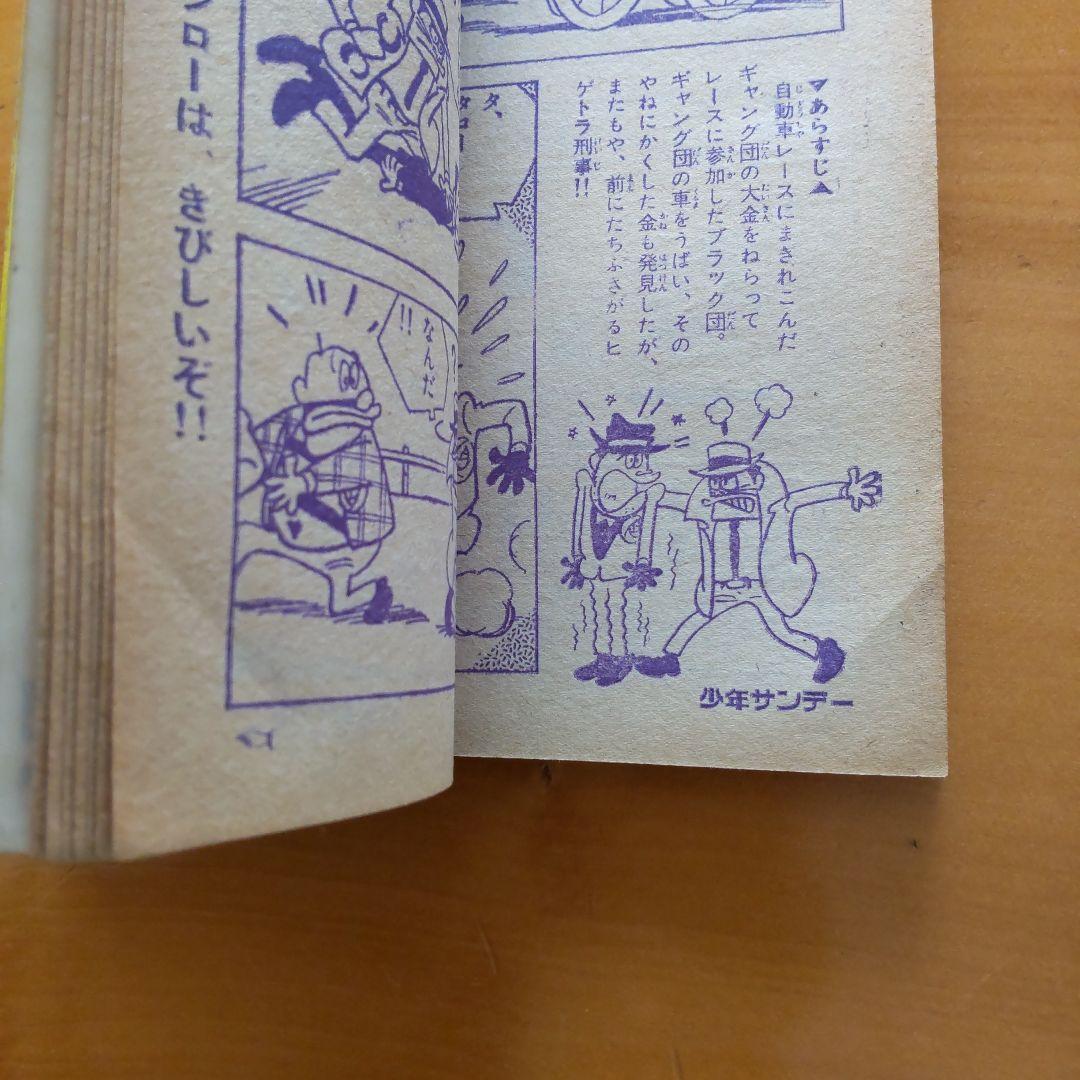 ▼あらすじ▲
自動車レースにまきれこんだ
ギャング団の大金をねらって
レースに参加したブラック団。
ギャング団の車をうばい、その
やねにかくした金も発見したが、
またもや、前にたちふさがるヒ
ゲトラ刑事!!
少年サンデー
なんだ
!!
ローは、きびしいぞ!!